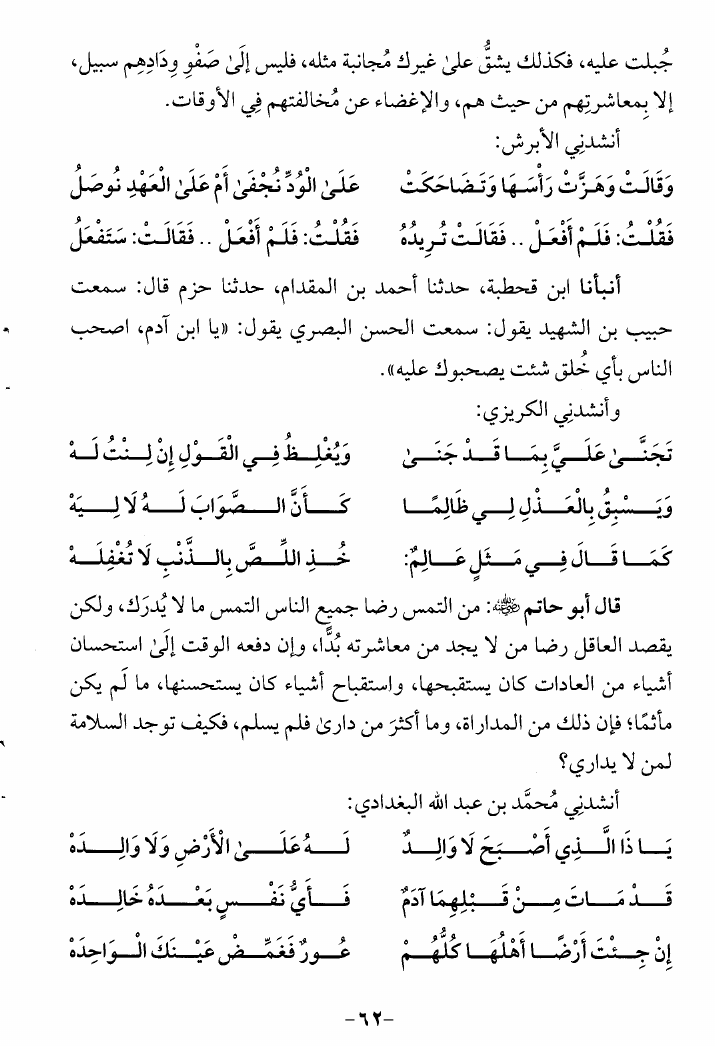 جُبلت عليه، فكذلك يشقُّ علىٰ غيرك مُجانبة مثله، فليس إلَىٰ صَفْوِ وِدَادِهِم سبيل،
إلا بِمعاشرتِهم من حيث هم، والإغضاء عن مُخالفتهم فِي الأوقات.
أنشدنِي الأبرش:
وَقَالَتْ وَهَزَّتْ رَأْسَهَا وَتَضَاحَكَتْ عَلَىٰ الْوُدِّ نُجْفَىٰ أَمْ عَلَىٰ الْعَهْدِ نُوصَلُ
فَقُلْتُ: فَلَمْ أَفْعَلْ .. فَقَالَتْ تُرِيدُهُ فَقُلْتُ: فَلَمْ أَفْعَلْ .. فَقَالَتْ: سَتَفْعَلُ
أنبأنا ابن قحطبة، حدثنا أحمد بن المقدام، حدثنا حزم قال: سمعت
حبيب بن الشهيد يقول: سمعت الحسن البصري يقول: «يا ابن آدم، اصحب
الناس بأي خُلق شئت يصحبوك عليه».
وأنشدنِي الكريزي:
تَجَنَّىٰ عَلَيَّ بِمَا قَدْ جَنَىٰ وَيُغْلِظُ فِي الْقَوْلِ إِنْ لِنْتُ لَهْ
وَيَسْبِقُ بِالْعَذْلِ لِي ظَالِمًا كَأَنَّ الصَّوَابَ لَهُ لَا لِيَهْ
كَمَا قَالَ فِي مَثَلٍ عَالِمٌ: خُذِ اللِّصَّ بِالذَّنْبِ لَا تُغْفِلَهْ
قال أبو حاتم رضي الله عنه: من التمس رضا جميع الناس التمس ما لا يُدرَك، ولكن
يقصد العاقل رضا من لا يجد من معاشرته بُدًّا، وإن دفعه الوقت إلَىٰ استحسان
أشياء من العادات كان يستقبحها، واستقباح أشياء كان يستحسنها، ما لَم يكن
مأثمًا؛ فإن ذلك من المداراة، وما أكثرَ من دارىٰ فلم يسلم، فكيف توجد السلامة
لمن لا يداري؟
أنشدنِي مُحمَّد بن عبد الله البغدادي:
يَا ذَا الَّذِي أَصْبَحَ لَا وَالِدٌ لَهُ عَلَىٰ الْأَرْضِ وَلَا وَالِدَهْ
قَدْ مَاتَ مِنْ قَبْلِهِمَا آدَمٌ فَأَيُّ نَفْسٍ بَعْدَهُ خَالِدَهْ
إِنْ جِئْتَ أَرْضًا أَهْلُهَا كُلُّهُمْ عُورٌ فَغَمِّضْ عَيْنَكَ الْوَاحِدَهْ
-٦٢-